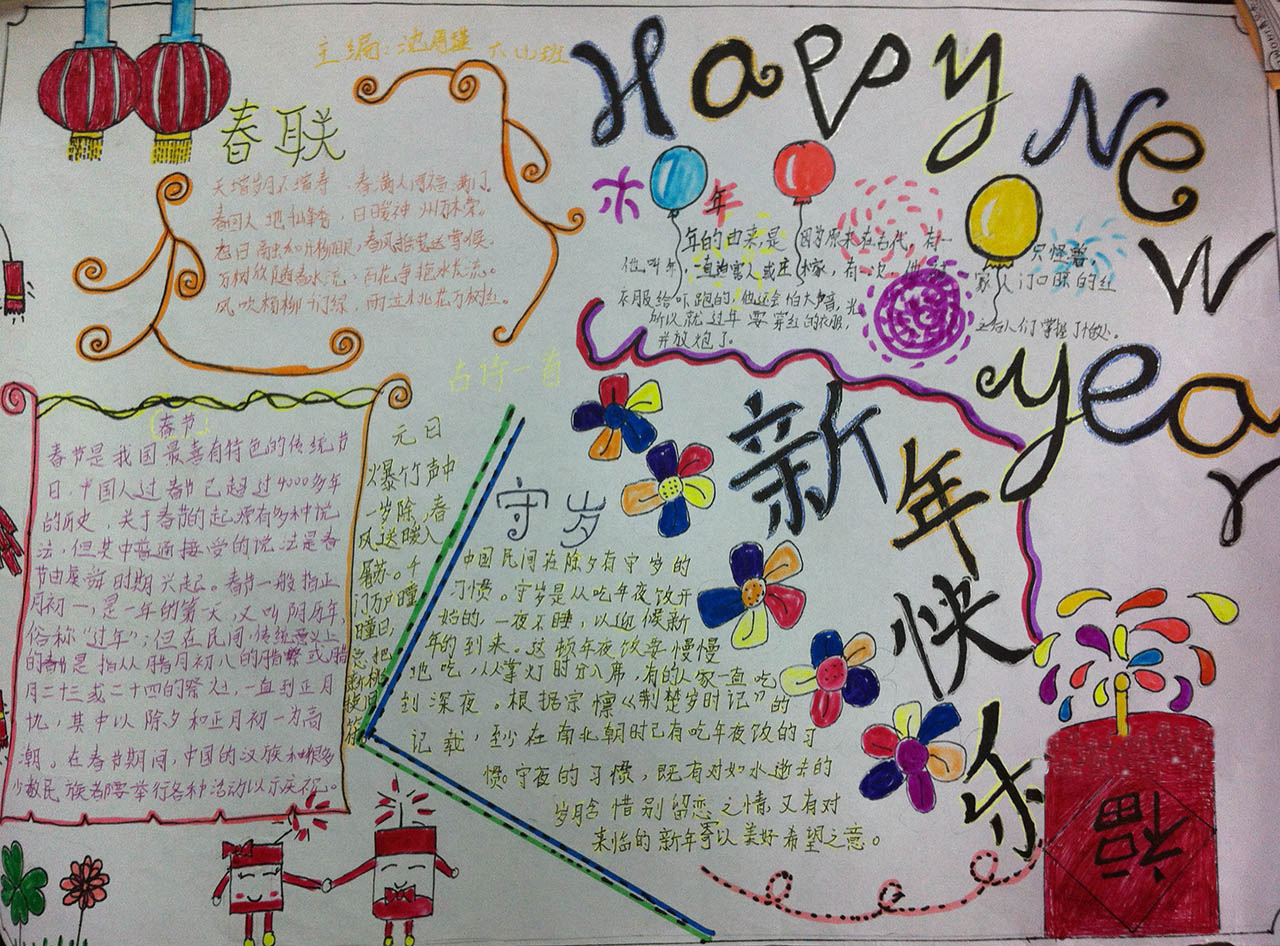 主编:沈 六山班
Happy
New
year
春联
天增岁月人增寿、春满人间福满门。
春回大地 ,日暖神州万木荣。
春风推
百花争艳水长流。
风吹杨柳千门绿,雨 花万树红。
年
年的由来是 因为原来在古代,有一
只怪兽,
他叫年,一直 害人或庄稼,有一次,他
家人门口晾的红
衣服给吓跑的,他还会怕大声音,光
所以就过年要穿红的衣服,
之后人们掌握了
并放炮了。
古诗一首
元日
爆竹声中
一岁除,春
风送暖入
屠苏。千
门万户瞳
瞳日,
总把
新桃
换旧
符
春节
春节是我国最喜有特色的传统节
日,中国人过春节已超过4000多年
的历史,关于春节的起源有多种说
法,但其中普通接受的说法是春
节由虞舜时期兴起。春节一般指正
月初一,是一年的第一天,又叫阴历年,
俗称“过年”;但在民间,传统意义上
的春节是指从腊月初八的腊祭或腊
月二十三或二十四的祭灶,一直到正月
其中以除夕和正月初一为高
潮。在春节期间,中国的汉族和很多
少数民族都要举行各种活动以示庆祝。
守岁
中国民间在除夕有守岁的
习惯。守岁是从吃年夜饭开
始的,一夜不睡,以迎候新
年的到来。这顿年夜饭要慢慢
地吃,从掌灯时分入席,有的人家一直吃
到深夜。根据宗懔《荆楚岁时记》的
记载,至少在南北朝时已有吃年夜饭的习
惯。守夜的习惯,既有对如水逝去的
岁月含惜别留恋之情,又有对
来临的新年寄以美好希望之意。
新年快乐
福